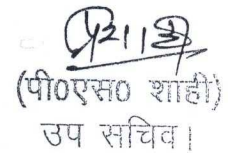 (पी०एस० शाही)
उप सचिव।